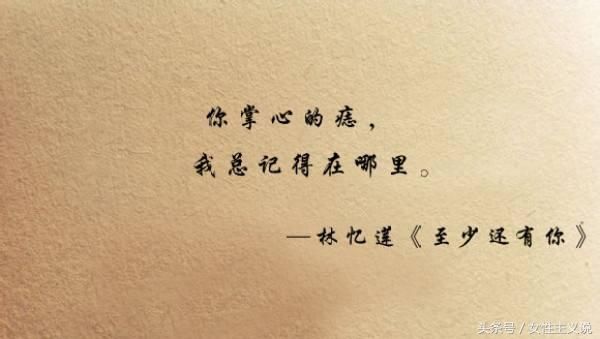 你掌心的痣，
我总记得在哪里。
—林忆莲《至少还有你》
头条号／女性主义说